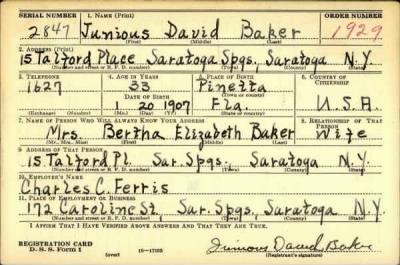 SERIAL NUMBER 1. NAME (Print) ORDER NUMBER
2847 Junious David Baker 1929
(First) (Middle) (Last)
2. ADDRESS (Print)
15 Talford Place Saratoga Spgs, Saratoga N.Y.
(Number and street or R. F. D. number) (Town) (County) (State)
3. TELEPHONE 4. AGE IN YEARS 5. PLACE OF BIRTH 6. COUNTRY OF CITIZENSHIP
1627 33 Pinetta
DATE OF BIRTH (Town or county)
1 20 1907 Fla. U.S.A.
(Mo.) (Day) (Yr.) (State or country)
7. NAME OF PERSON WHO WILL ALWAYS KNOW YOUR ADDRESS 8. RELATIONSHIP OF THAT PERSON
Mrs. Bertha Elizabeth Baker Wife
(Mr., Mrs., Miss) (First) (Middle) (Last)
9. ADDRESS OF THAT PERSON
15 Talford Pl. Sar. Spgs. Saratoga N.Y.
(Number and street or R. F. D. number) (Town) (County) (State)
10. EMPLOYER'S NAME
Charles C. Ferris
11. PLACE OF EMPLOYMENT OR BUSINESS
172 Caroline St, Sar. Spgs, Saratoga N.Y.
(Number and street or R. F. D. number) (Town) (County) (State)
I AFFIRM THAT I HAVE VERIFIED ABOVE ANSWERS AND THAT THEY ARE TRUE.
REGISTRATION CARD
D. S. S. Form 1 (over) 16-17105 Junious David Baker
(Registrant's signature)